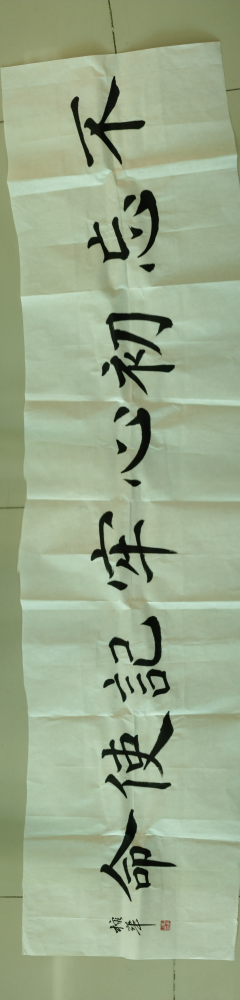 不忘初心牢記使命